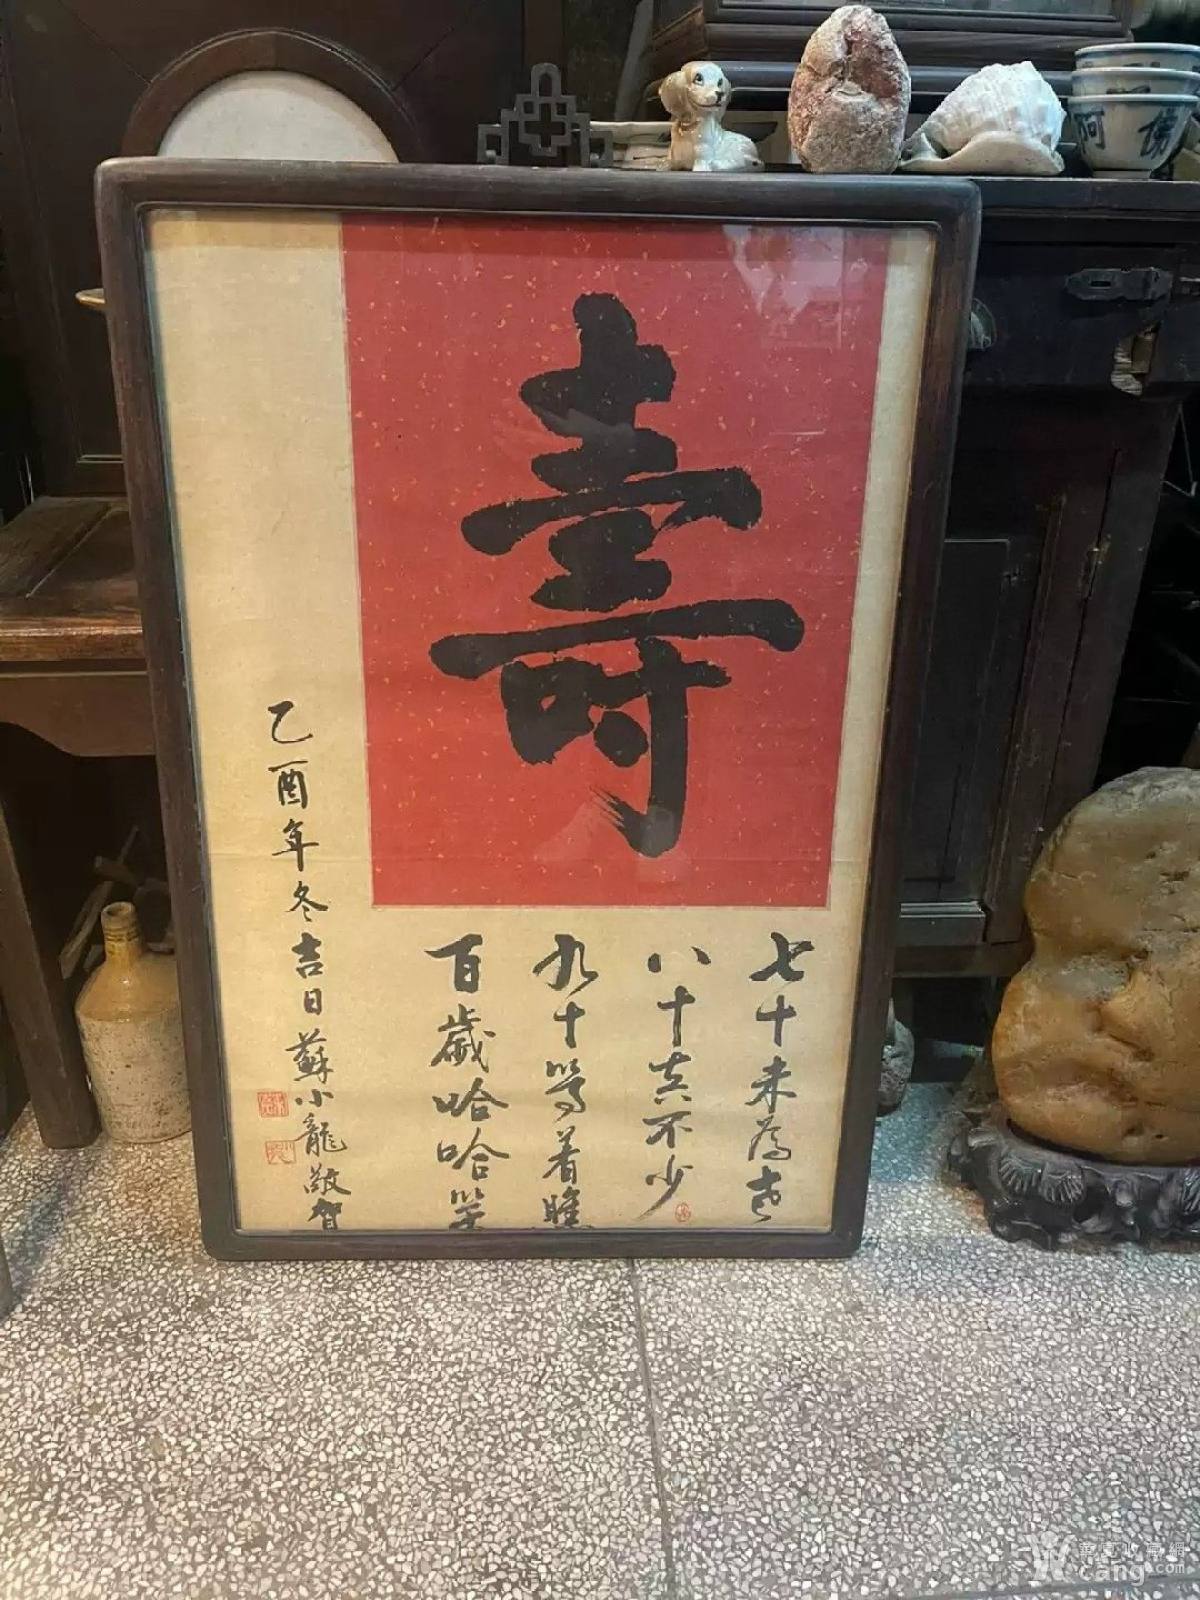 壽
七十未為老
八十真不少
九十等着瞧
百歲哈哈笑
乙酉年冬吉日蘇小龍敬賀
阿
佛
華夏收藏網
cang.com